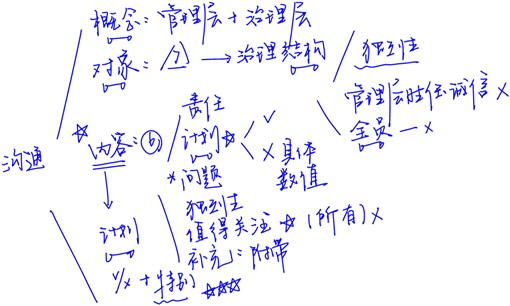 概念：管理层+治理层
对象： → 治理结构
独立性
管理层胜任诚信 x
全员 — x
沟通
☆ 内容：⑥
责任
计划 ☆ √
x 具体
数值
*问题
独立性
值得关注 ☆ (所有) x
补充：附带
计划
√/x + 特别 ☆☆☆